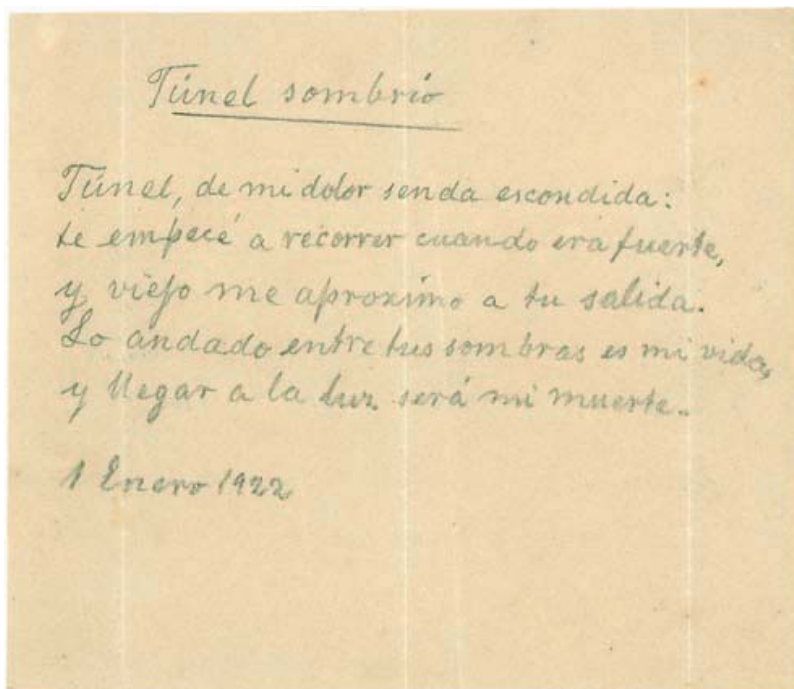 Túnel sombrío
Túnel, de mi dolor senda escondida:
te empecé a recorrer cuando era fuerte,
y viejo me aproximo a tu salida.
Lo andado entre tus sombras es mi vida,
y llegar a la luz será mi muerte.
1 Enero 1922